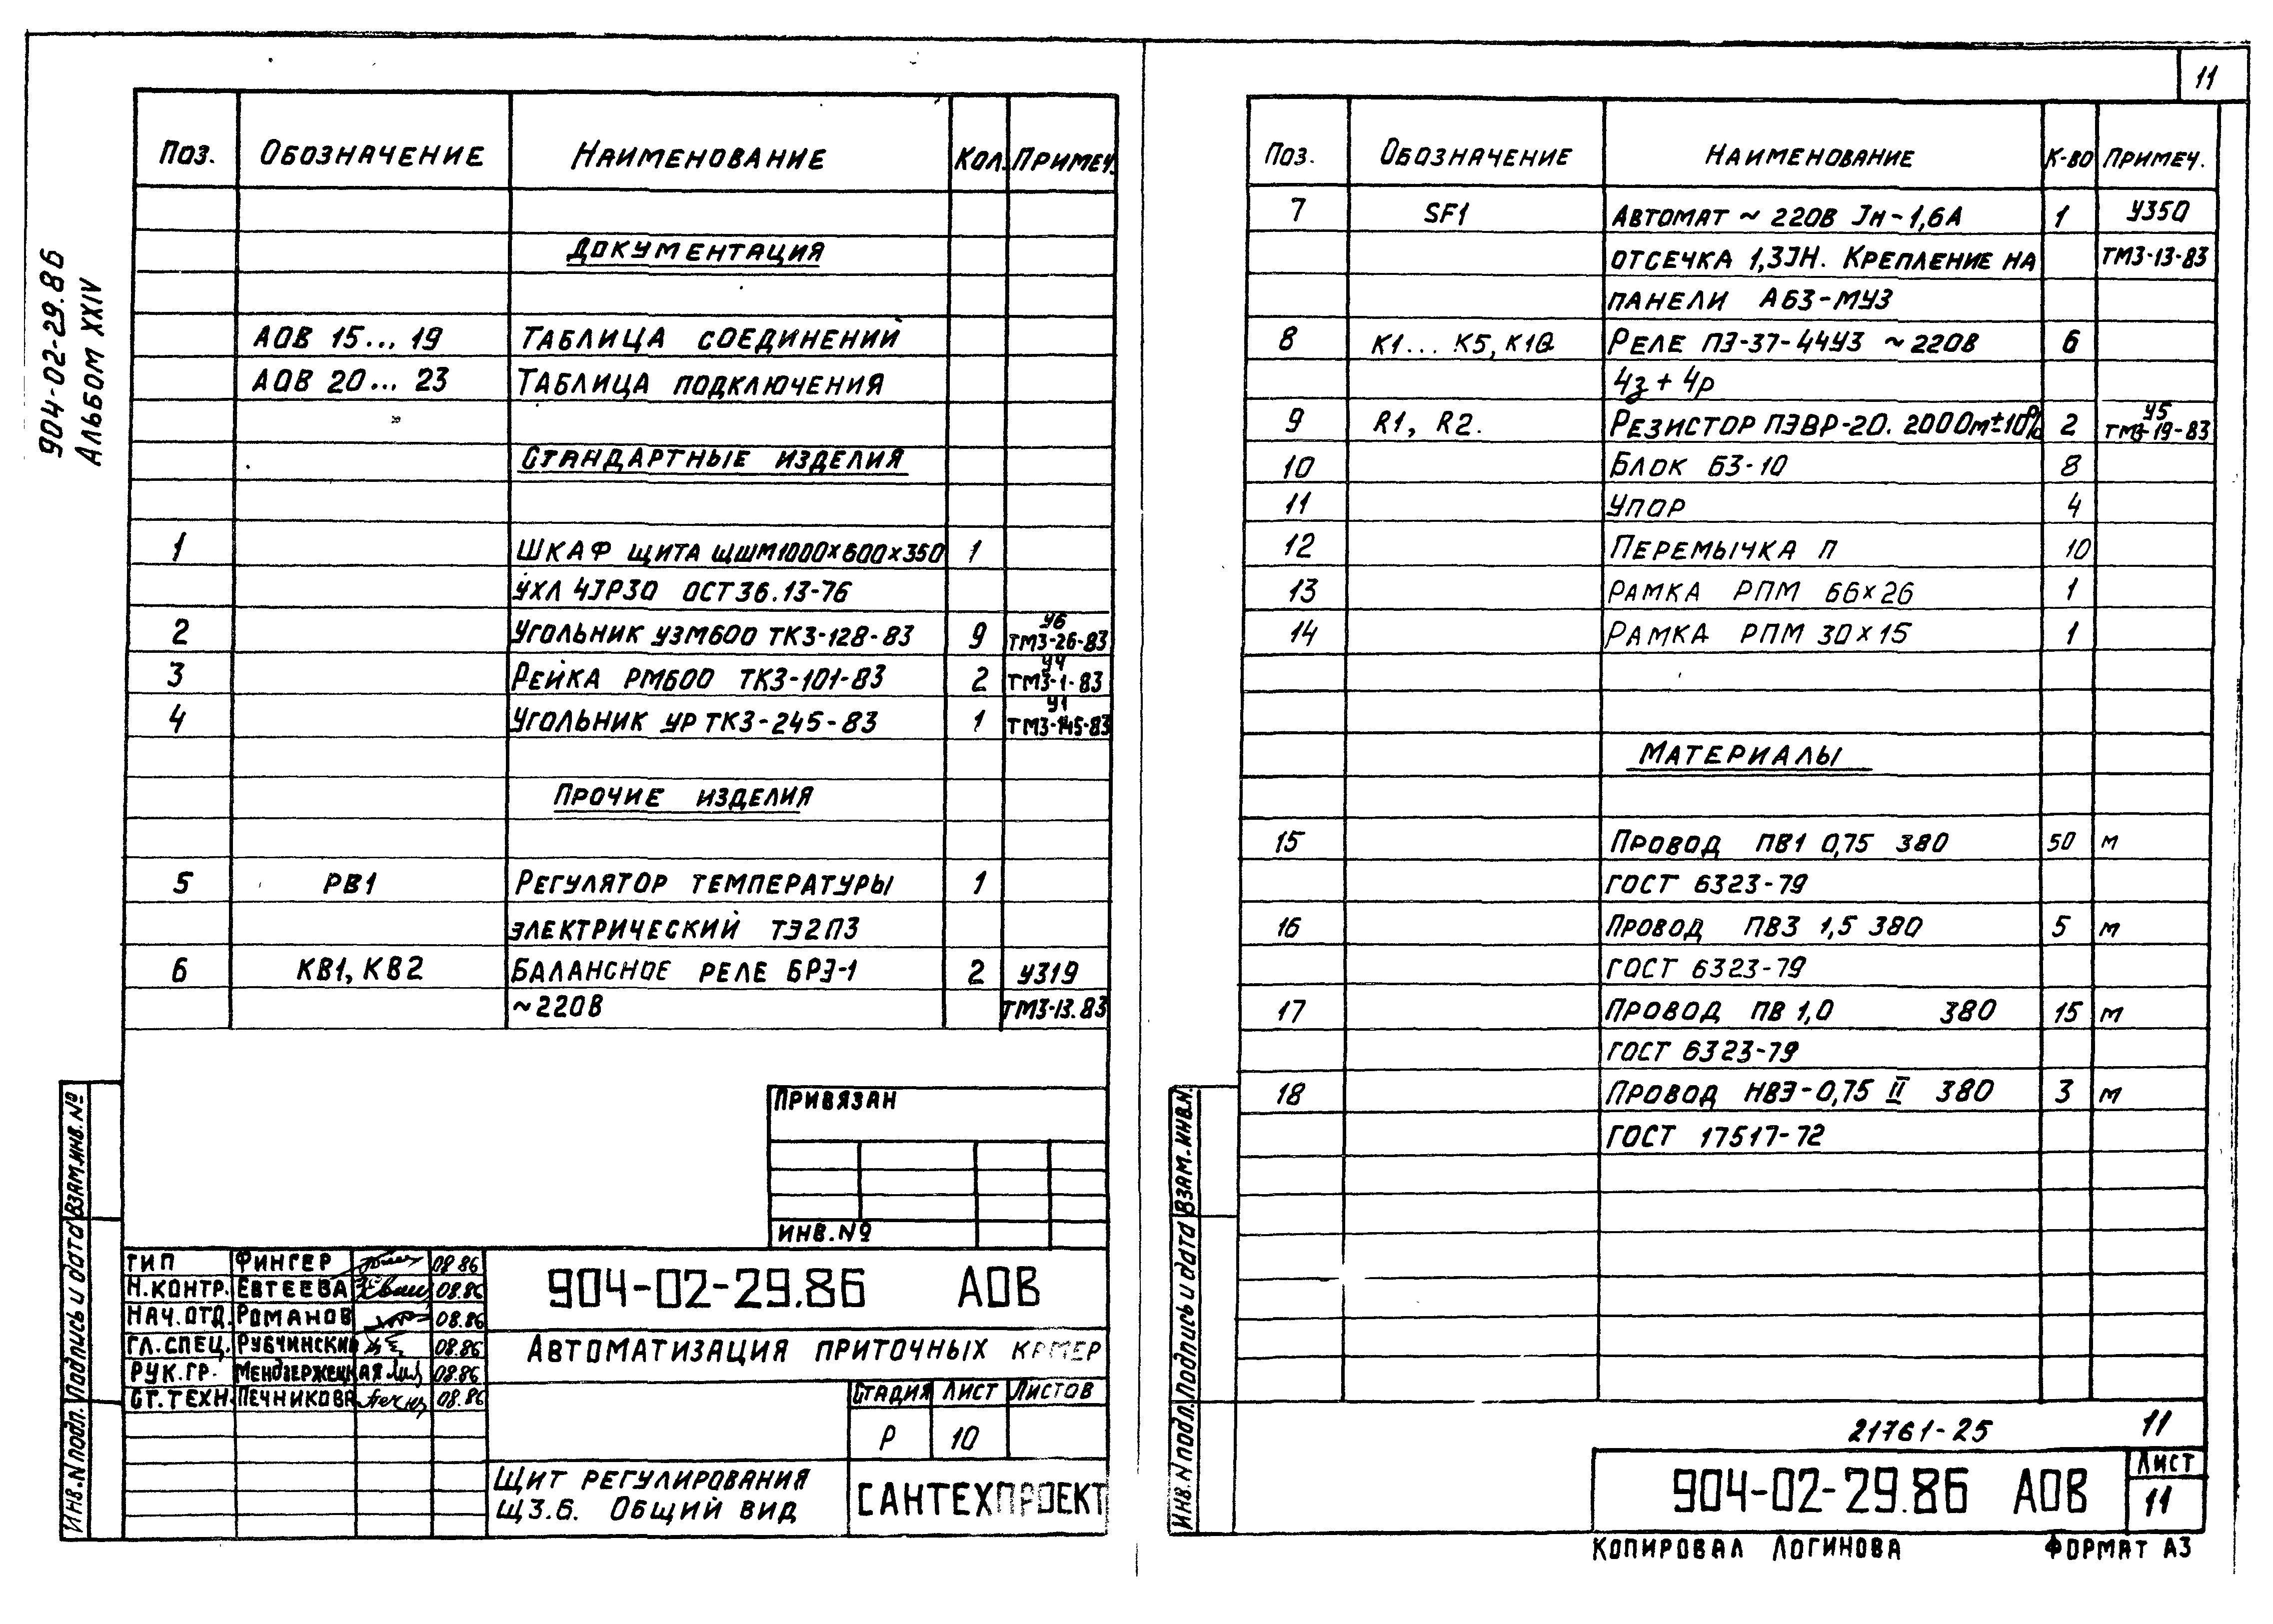 904-02-29.86
Альбом XXIV
Поз. Обозначение Наименование Кол. Примеч.
Документация
АОВ 15... 19 Таблица соединений
АОВ 20... 23 Таблица подключения
Стандартные изделия
1 Шкаф щита ЩШМ1000×600×350 1
УХЛ 4JP30 ОСТ36.13-76
2 Угольник УЗМ600 ТК3-128-83 9 У6 ТМ3-26-83
3 Рейка РМ600 ТК3-101-83 2 У4 ТМ3-1-83
4 Угольник УР ТК3-245-83 1 У1 ТМ3-145-83
Прочие изделия
5 РВ1 Регулятор температуры 1
электрический ТЭ2П3
6 КВ1, КВ2 Балансное реле БРЭ-1 2 У319
~220В ТМ3-13.83
Привязан
Инв.№
ГИП Фингер 08.86
Н.контр. Евтеева 08.86
Нач.отд. Романов 08.86
Гл.спец. Рубчинский 08.86
Рук.гр. Мендзержецкая 08.86
Ст.техн. Печникова 08.86
904-02-29.86 АОВ
Автоматизация приточных камер
Стадия Лист Листов
Р 10
Щит регулирования
Щ3.6. Общий вид
САНТЕХПРОЕКТ
Инв.N подл. Подпись и дата Взам.инв.№
11
Поз. Обозначение Наименование К-во Примеч.
7 SF1 Автомат ~ 220В Jн-1,6А 1 У350
отсечка 1,3Jн. Крепление на ТМ3-13-83
панели А63-МУ3
8 К1... К5, К1Q Реле ПЭ-37-44У3 ~220В 6
4з + 4р
9 R1, R2. Резистор ПЭВР-20. 200Ом±10% 2 У5 ТМ3-19-83
10 Блок БЗ-10 8
11 Упор 4
12 Перемычка П 10
13 Рамка РПМ 66×26 1
14 Рамка РПМ 30×15 1
Материалы
15 Провод ПВ1 0,75 380 50 м
ГОСТ 6323-79
16 Провод ПВ3 1,5 380 5 м
ГОСТ 6323-79
17 Провод ПВ 1,0 380 15 м
ГОСТ 6323-79
18 Провод НВЭ-0,75 II 380 3 м
ГОСТ 17517-72
Инв.N подл. Подпись и дата Взам.инв.N.
21761-25 11
904-02-29.86 АОВ
Лист
11
Копировал Логинова Формат А3